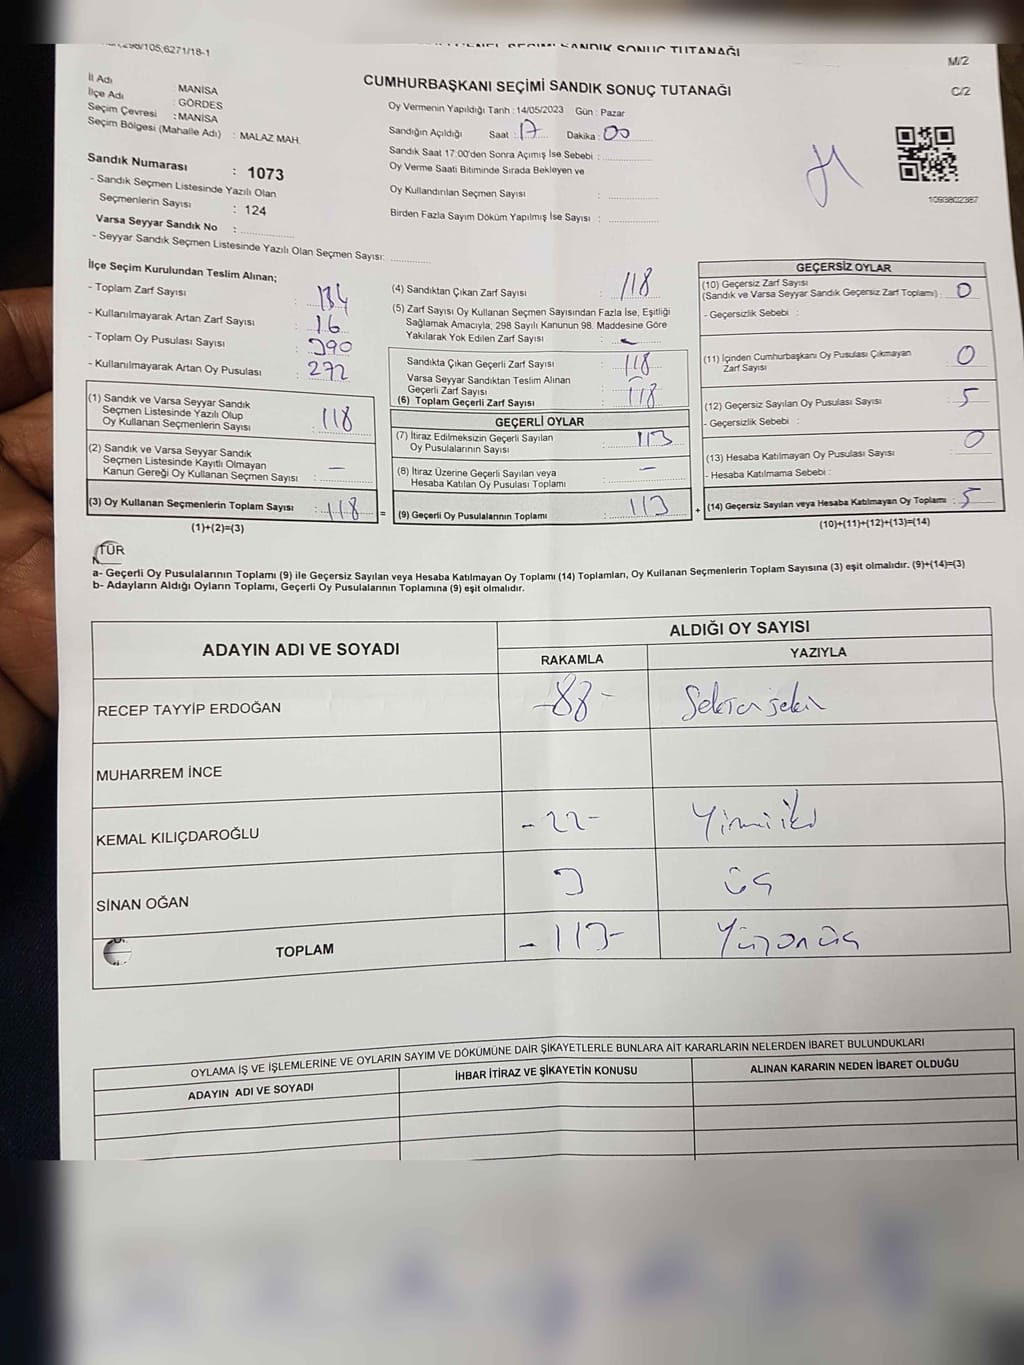 298/105,6271/18-1
SANDIK SONUÇ TUTANAĞI
M/2
C/2
CUMHURBAŞKANI SEÇİMİ SANDIK SONUÇ TUTANAĞI
İl Adı : MANİSA
İlçe Adı : GÖRDES
Seçim Çevresi : MANİSA
Seçim Bölgesi (Mahalle Adı) : MALAZ MAH.
Sandık Numarası : 1073
- Sandık Seçmen Listesinde Yazılı Olan
Seçmenlerin Sayısı : 124
Varsa Seyyar Sandık No :
- Seyyar Sandık Seçmen Listesinde Yazılı Olan Seçmen Sayısı:
Oy Vermenin Yapıldığı Tarih : 14/05/2023 Gün : Pazar
Sandığın Açıldığı Saat : 17 Dakika : 00
Sandık Saat 17:00'den Sonra Açımış İse Sebebi :
Oy Verme Saati Bitiminde Sırada Bekleyen ve
Oy Kullandırılan Seçmen Sayısı :
Birden Fazla Sayım Döküm Yapılmış İse Sayısı :
1093802387
İlçe Seçim Kurulundan Teslim Alınan;
- Toplam Zarf Sayısı : 134
- Kullanılmayarak Artan Zarf Sayısı : 16
- Toplam Oy Pusulası Sayısı : 390
- Kullanılmayarak Artan Oy Pusulası : 272
(1) Sandık ve Varsa Seyyar Sandık
Seçmen Listesinde Yazılı Olup
Oy Kullanan Seçmenlerin Sayısı : 118
(2) Sandık ve Varsa Seyyar Sandık
Seçmen Listesinde Kayıtlı Olmayan
Kanun Gereği Oy Kullanan Seçmen Sayısı : -
(3) Oy Kullanan Seçmenlerin Toplam Sayısı : 118
(1)+(2)=(3)
=
(4) Sandıktan Çıkan Zarf Sayısı : 118
(5) Zarf Sayısı Oy Kullanan Seçmen Sayısından Fazla İse, Eşitliği
Sağlamak Amacıyla; 298 Sayılı Kanunun 98. Maddesine Göre
Yakılarak Yok Edilen Zarf Sayısı : -
Sandıkta Çıkan Geçerli Zarf Sayısı : 118
Varsa Seyyar Sandıktan Teslim Alınan
Geçerli Zarf Sayısı : -
(6) Toplam Geçerli Zarf Sayısı : 118
GEÇERLİ OYLAR
(7) İtiraz Edilmeksizin Geçerli Sayılan
Oy Pusulalarının Sayısı : 113
(8) İtiraz Üzerine Geçerli Sayılan veya
Hesaba Katılan Oy Pusulası Toplamı : -
(9) Geçerli Oy Pusulalarının Toplamı : 113
+
GEÇERSİZ OYLAR
(10) Geçersiz Zarf Sayısı
(Sandık ve Varsa Seyyar Sandık Geçersiz Zarf Toplamı) : 0
- Geçersizlik Sebebi :
(11) İçinden Cumhurbaşkanı Oy Pusulası Çıkmayan
Zarf Sayısı : 0
(12) Geçersiz Sayılan Oy Pusulası Sayısı : 5
- Geçersizlik Sebebi :
(13) Hesaba Katılmayan Oy Pusulası Sayısı : 0
- Hesaba Katılmama Sebebi :
(14) Geçersiz Sayılan veya Hesaba Katılmayan Oy Toplamı : 5
(10)+(11)+(12)+(13)=(14)
TÜR
a- Geçerli Oy Pusulalarının Toplamı (9) ile Geçersiz Sayılan veya Hesaba Katılmayan Oy Toplamı (14) Toplamları, Oy Kullanan Seçmenlerin Toplam Sayısına (3) eşit olmalıdır. (9)+(14)=(3)
b- Adayların Aldığı Oyların Toplamı, Geçerli Oy Pusulalarının Toplamına (9) eşit olmalıdır.
ADAYIN ADI VE SOYADI
ALDIĞI OY SAYISI
RAKAMLA YAZIYLA
RECEP TAYYİP ERDOĞAN -88- Seksensekiz
MUHARREM İNCE
KEMAL KILIÇDAROĞLU -22- Yirmiiki
SİNAN OĞAN 3 üç
TOPLAM -113- Yüzonüç
OYLAMA İŞ VE İŞLEMLERİNE VE OYLARIN SAYIM VE DÖKÜMÜNE DAİR ŞİKAYETLERLE BUNLARA AİT KARARLARIN NELERDEN İBARET BULUNDUKLARI
ADAYIN ADI VE SOYADI İHBAR İTİRAZ VE ŞİKAYETİN KONUSU ALINAN KARARIN NEDEN İBARET OLDUĞU